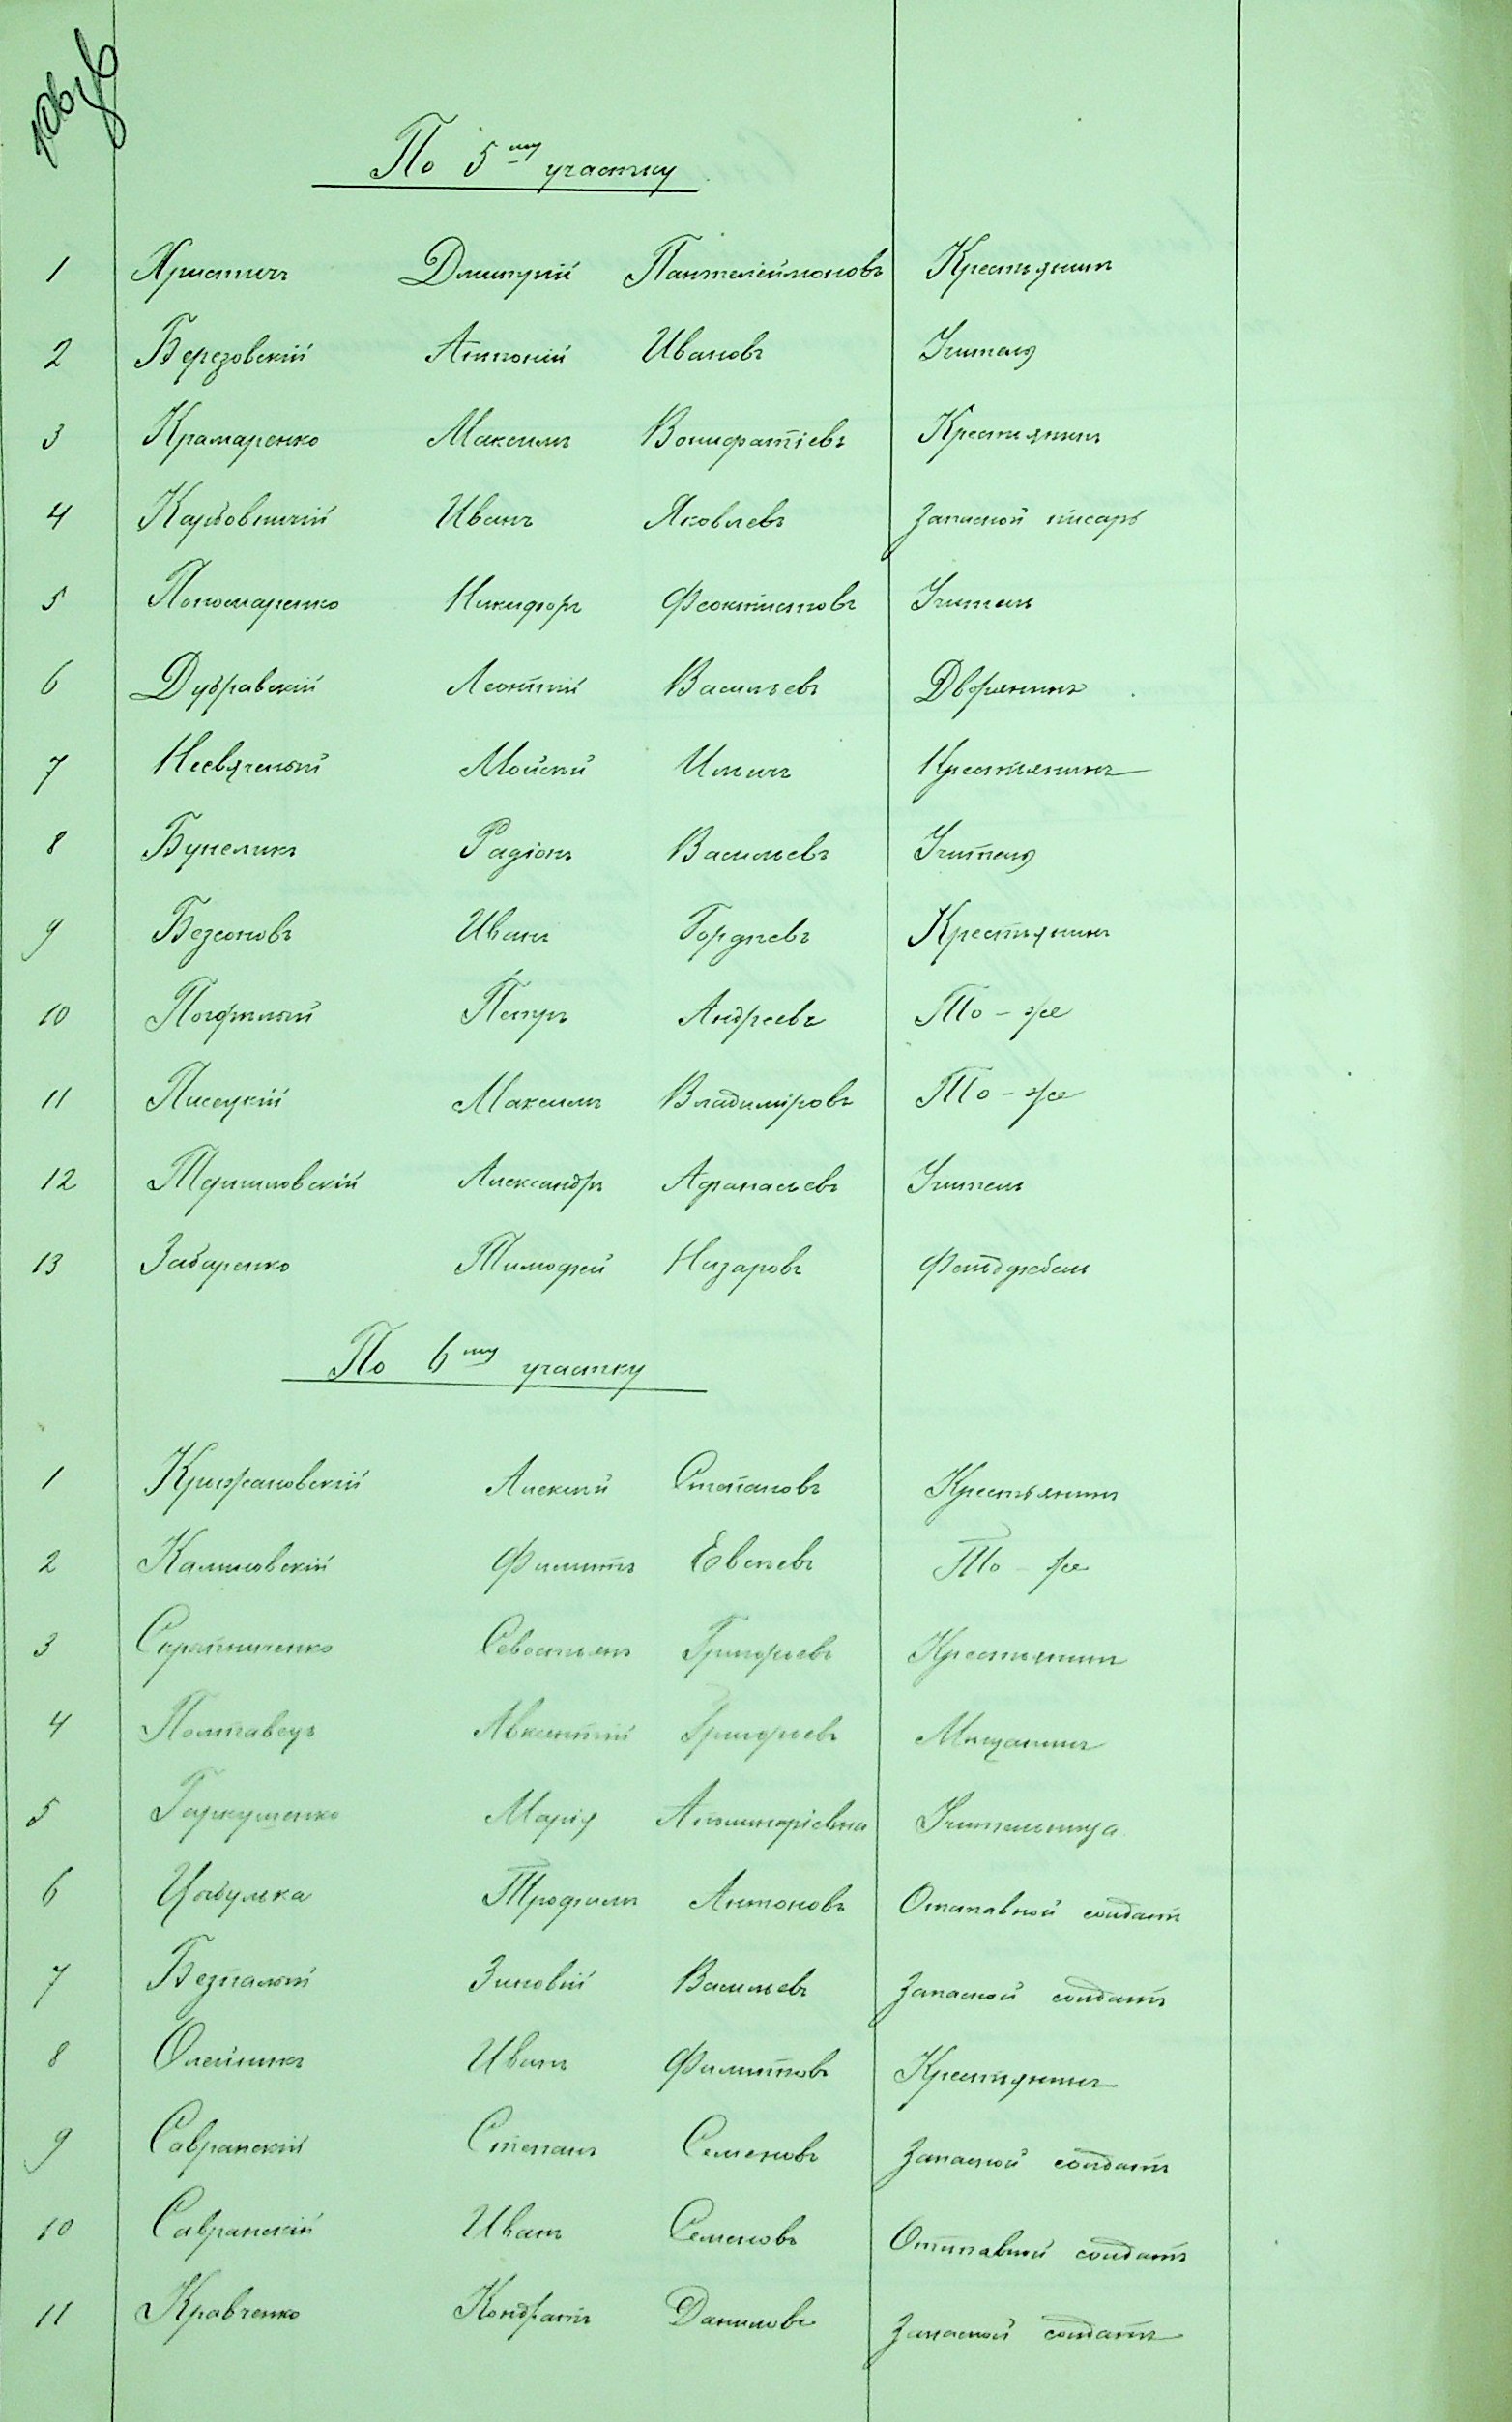 По 5му участку
1 Христичъ Дмитрій Пантелеймоновъ Крестьянинъ
2 Березовскій Антоній Ивановъ Учитель
3 Крамаренко Максимъ Вонифатіевъ Крестьянинъ
4 Карбовничій Иванъ Яковлевъ Запасной писарь
5 Пономаренко Никифоръ Феоктистовъ Учитель
6 Дубравскій Леонтій Васильевъ Дворянинъ
7 Несвяченый Мойсей Ильичъ Крестьянинъ
8 Букеликъ Радіонъ Васильевъ Учитель
9 Безсоновъ Иванъ Гордѣевъ Крестьянинъ
10 Петръ Андреевъ То-же
11 Писецкій Максимъ Владиміровъ То-же
12 Александръ Афанасьевъ Учитель
13 Забаренко Тимофей Назаровъ Фельдфебель
По 6му участку
1 Крыжановскій Алексѣй Степановъ Крестьянинъ
2 Калиновскій Филиппъ Евсѣевъ То-же
3 Скрипниченко Севостьянъ Григорьевъ Крестьянинъ
4 Полтавецъ Авксентій Григорьевъ Мѣщанинъ
5 Гаркушенко Марія Учительница
6 Цыбулька Трофимъ Антоновъ Отставной солдатъ
7 Безпалый Зиновій Васильевъ Запасной солдатъ
8 Олейникъ Иванъ Филипповъ Крестьянинъ
9 Савранскій Степанъ Семеновъ Запасной солдатъ
10 Савранскій Иванъ Семеновъ Отставной солдатъ
11 Кравченко Кондратъ Даниловъ Запасной солдатъ